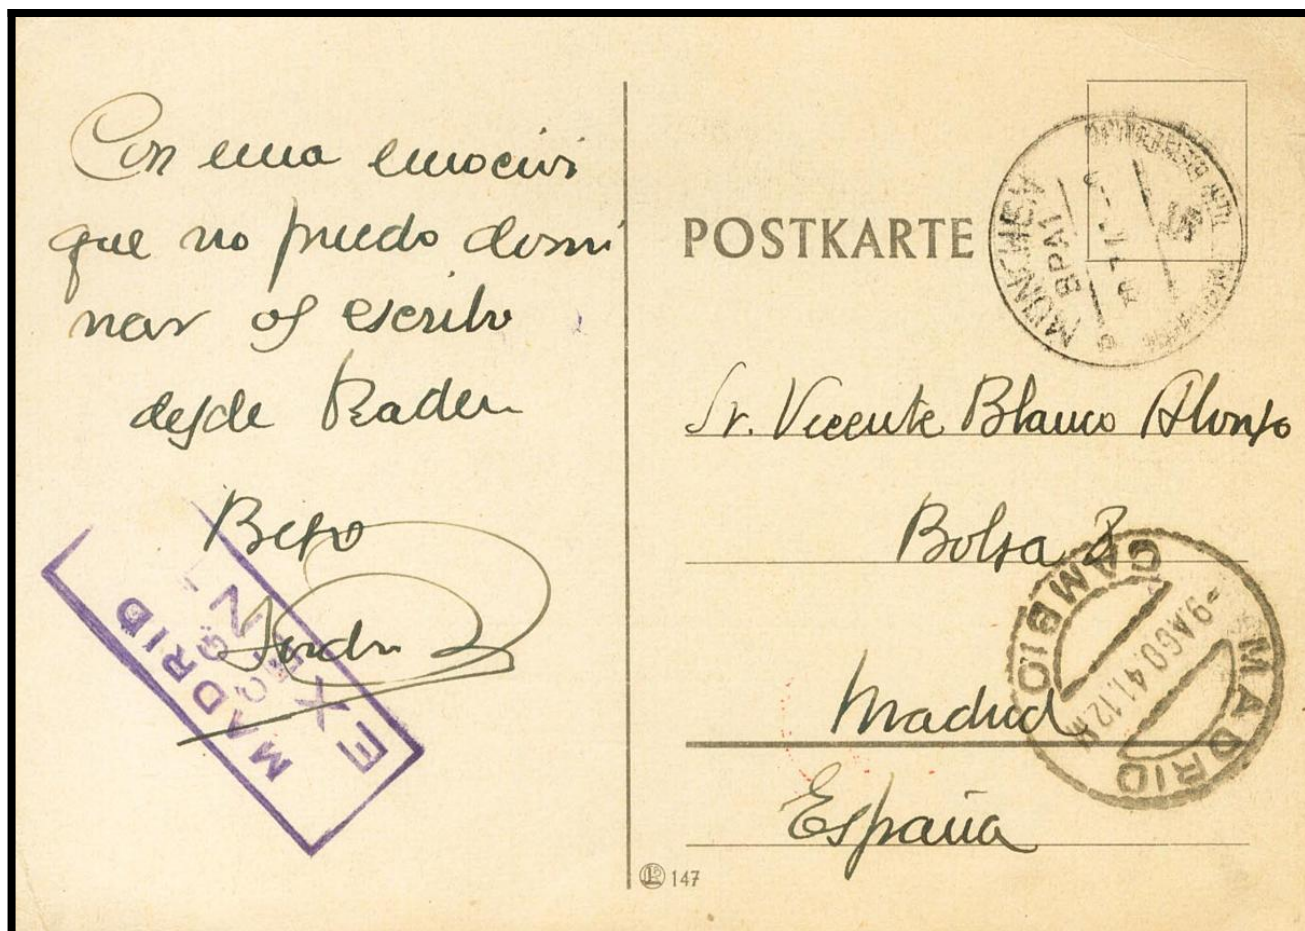 Con una emoción
que no puedo domi
nar os escribo
desde Baden
Beso
MADRID
EX
N 1
POSTKARTE
MÜNCHEN
Sr. Vicente Blanco Alonso
Bolsa
Madrid
España
CAMBIO
-9 AGO. 41. 12
MADRID
147